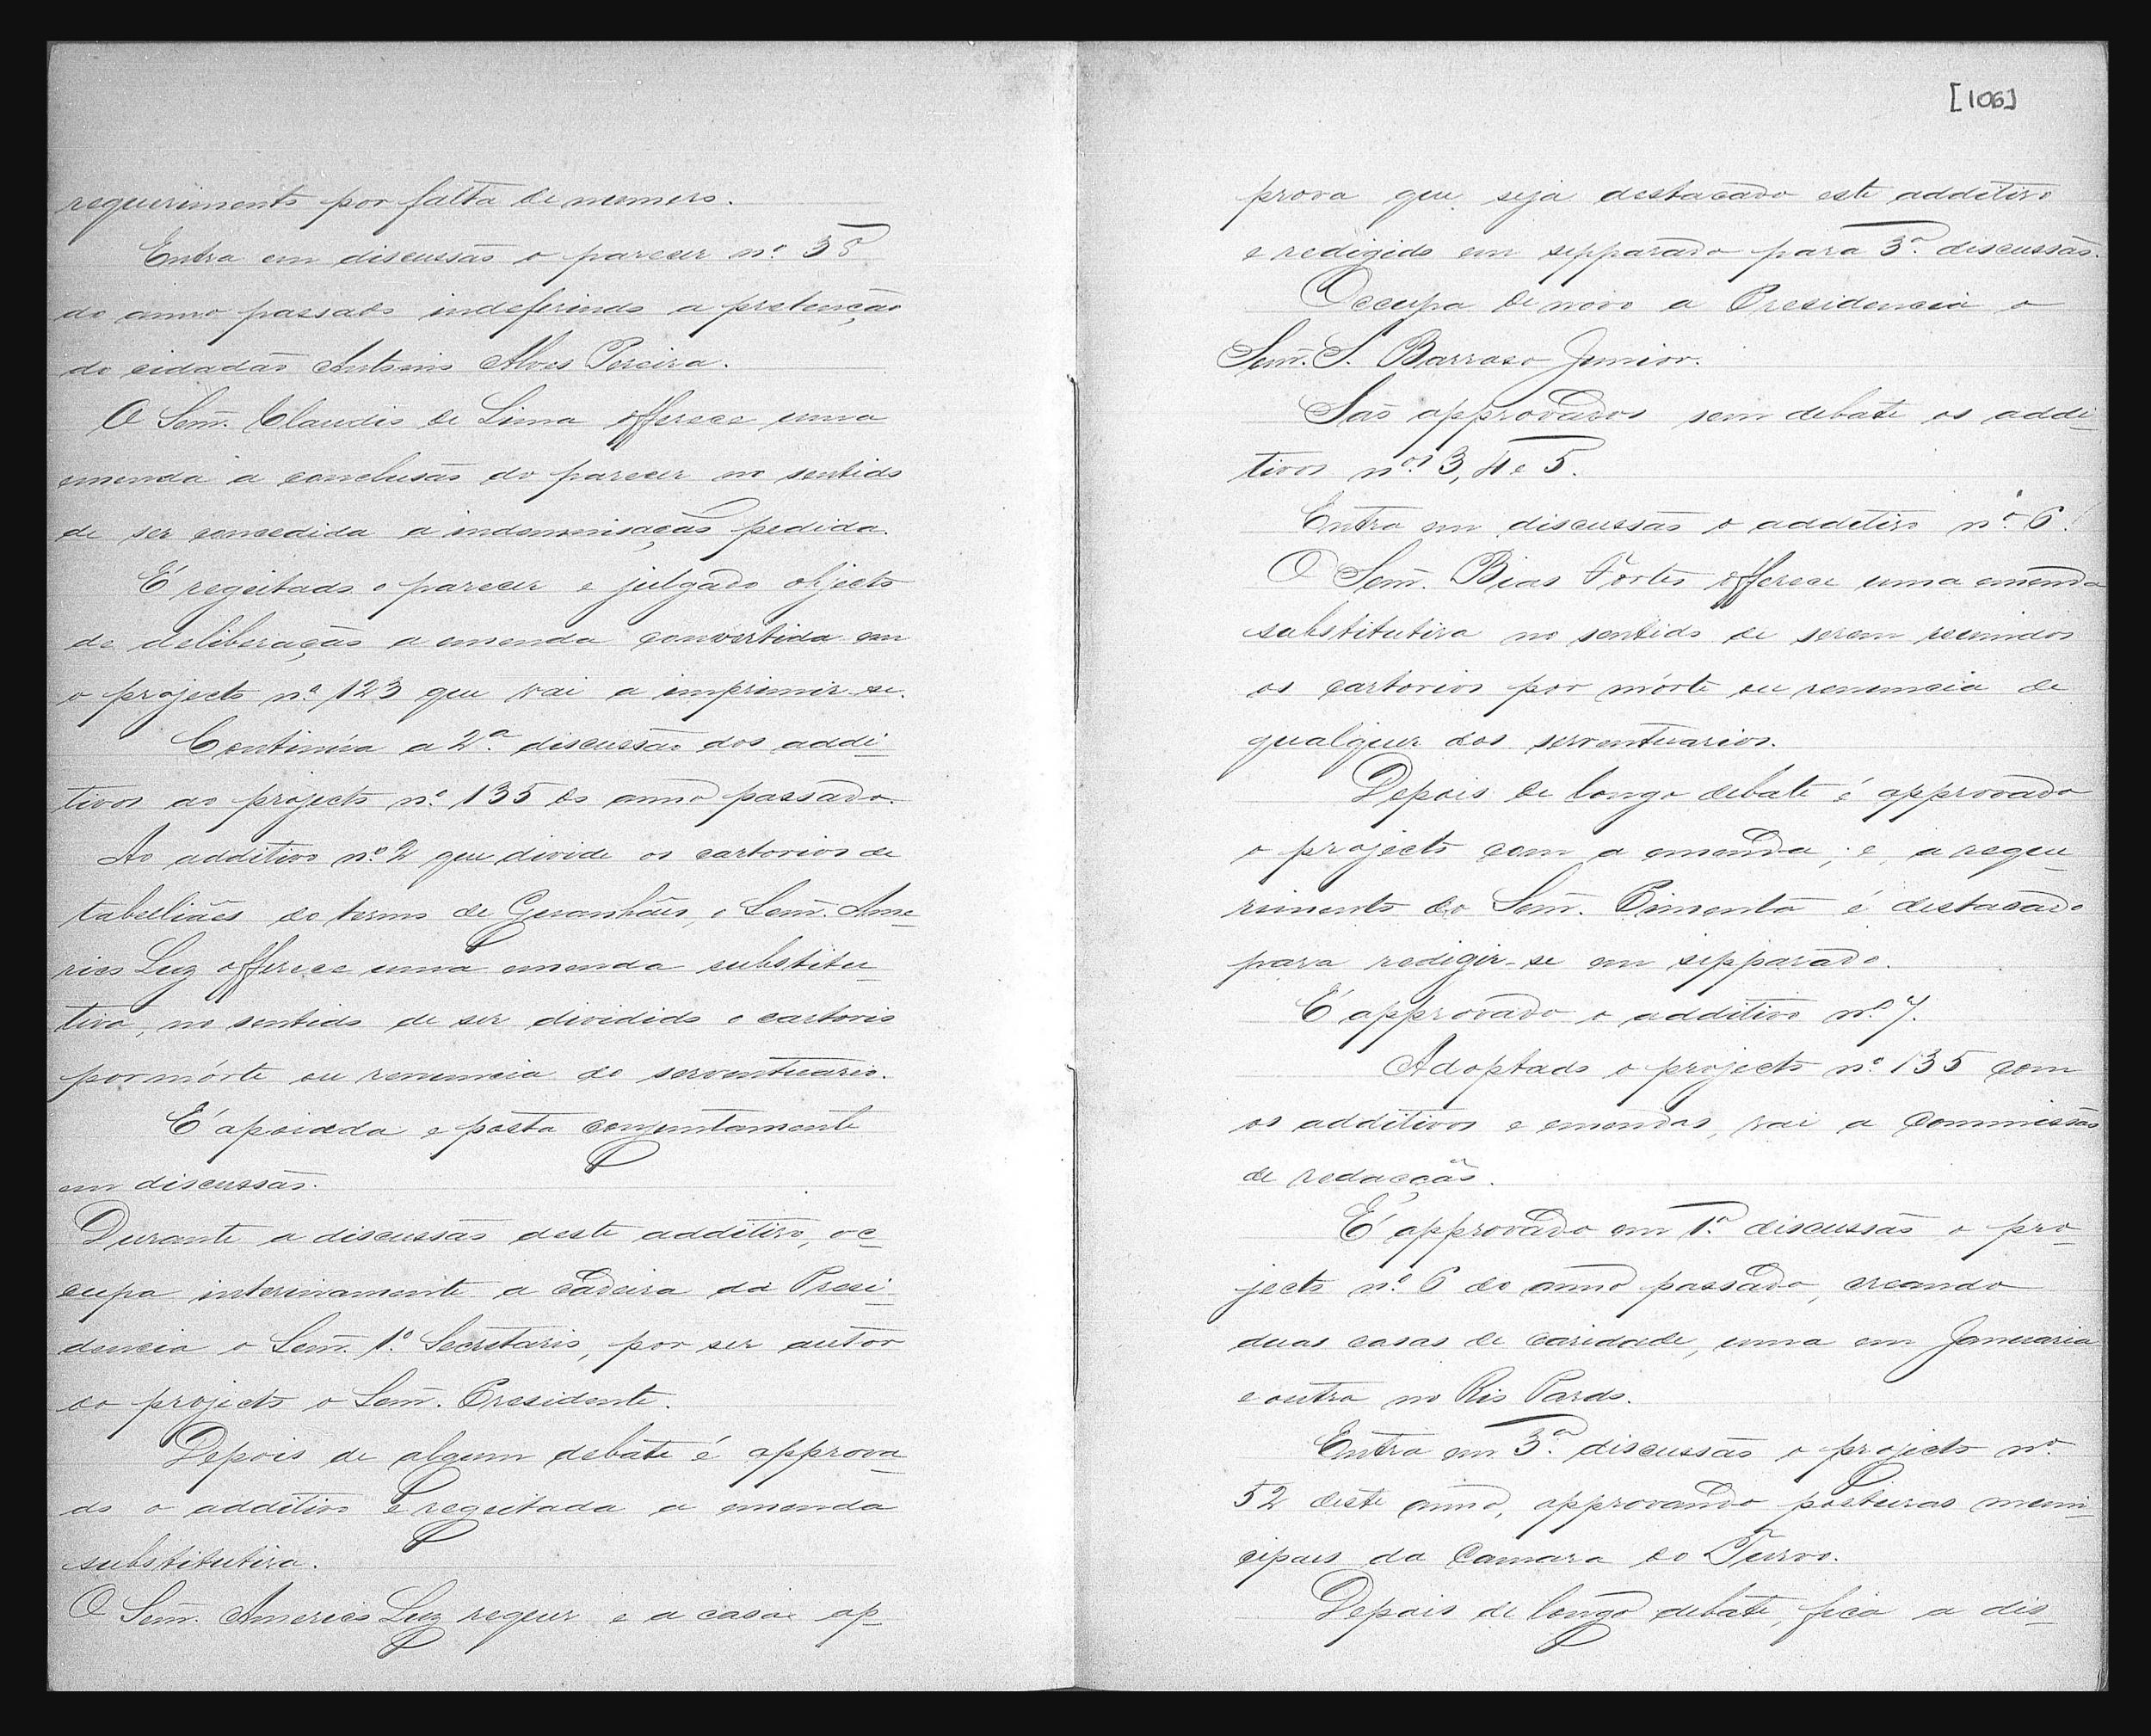 requerimento por falta de numero.
Entra em discussão o parecer nº 35
do anno passado indeferindo a pretenção
do cidadão Antonio Alves Pereira.
O Senr. Claudio de Lima offerece uma
emenda a conclusão do parecer no sentido
de ser concedida a indemnisação pedida.
É regeitado o parecer e julgado objecto
de deliberação a emenda convertida em
o projecto nº 123 que vai a imprimir-se.
Continúa a 2ª discussão dos addi-
tivos ao projecto nº 135 do anno passado.
Ao additivo nº 2 que divide os cartorios de
tabelliães do termo de Guanhães, o Senr. Ame-
rico Luz offerece uma emenda substitu-
tiva, no sentido de ser dividido o cartorio
por mórte ou renuncia do serventuario.
É apoiada e posta conjuntamente
em discussão.
Durante a discussão deste additivo, oc-
cupa interinamente a cadeira da Presi-
dencia o Senr. 1º Secretario, por ser autor
do projecto o Senr. Presidente.
Depois de algum debate é approva-
do o additivo e regeitada a emenda
substitutiva.
O Senr. Americo Luz requer e a casa ap-
[106]
prova que seja destacado este additivo
e redigido em sepparado para 3ª discussão.
Occupa de novo a Presidencia o
Senr. S. Barroso Junior.
São approvados sem debate os addi-
tivos nos 3, 4 e 5.
Entra em discussão o additivo nº 6.
O Senr. Bias Fortes offerece uma emenda
substitutiva no sentido de serem reunidos
os cartorios por mórte ou renuncia de
qualquer dos serventuarios.
Depois de longo debate é approvado
o projecto com a emenda; e, a reque-
rimento do Senr. Pimenta é destacado
para redigir-se em sepparado.
É approvado o additivo nº 7.
Adoptado o projecto nº 135 com
os additivos e emendas, vai a commissão
de redacção.
É approvado em 1ª discussão o pro-
jecto nº 6 do anno passado, creando
duas casas de caridade, uma em Januaria
e outra no Rio Pardo.
Entra em 3ª discussão o projecto nº
52 deste anno, approvando posturas muni-
cipaes da Camara do Turvo.
Depois de longo debate, fica a dis-